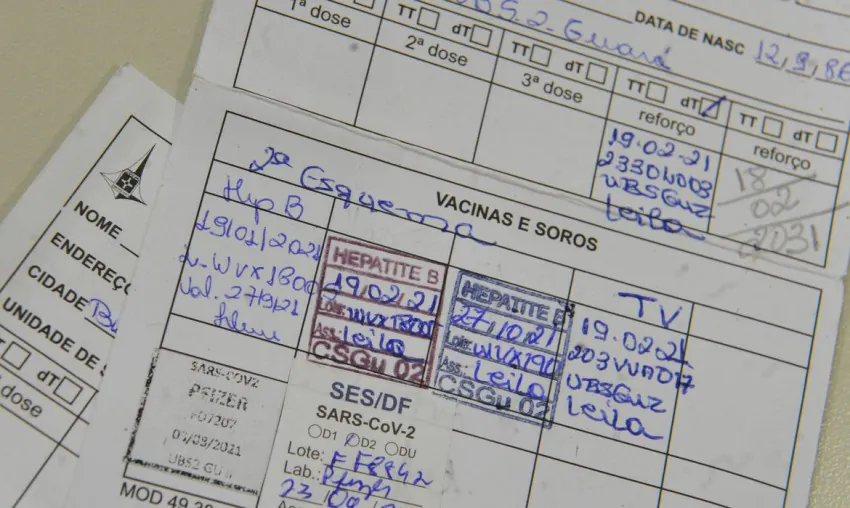 UBS 2 - Guará
DATA DE NASC 12,9,86
1ª dose
TT dT
2ª dose
TT dT
3ª dose
TT dT
reforço
19.02.21
UBSGu2
Leila
TT dT
reforço
18
02
2031
VACINAS E SOROS
2ª Esquema
Hep B
19/01/2021
Val. 27/9/21
HEPATITE B
19,02,21
Lote:
Ass.: Leila
CSGu 02
HEPATITE B
27,10,21
Lote:
Ass.: Leila
CSGu 02
TV
19.02.21
UBSGu2
Leila
SARS-COV2
PFIZER
UBS2 GU
SES/DF
SARS-CoV-2
D1 D2 DU
Lote:
Lab.: Pfizer
MOD 49
NOME
ENDEREÇ
CIDADE
UNIDADE DE S
TT dT
dose